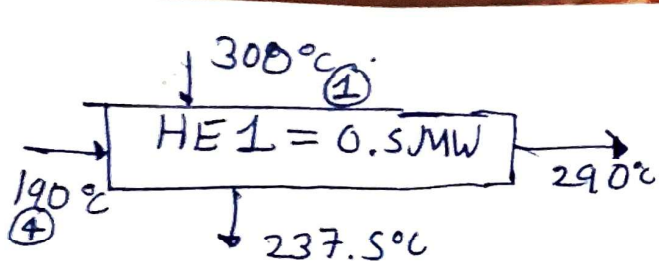 300°C.
①
HE 1 = 0.5MW
190°C
④
290°C
237.5°C